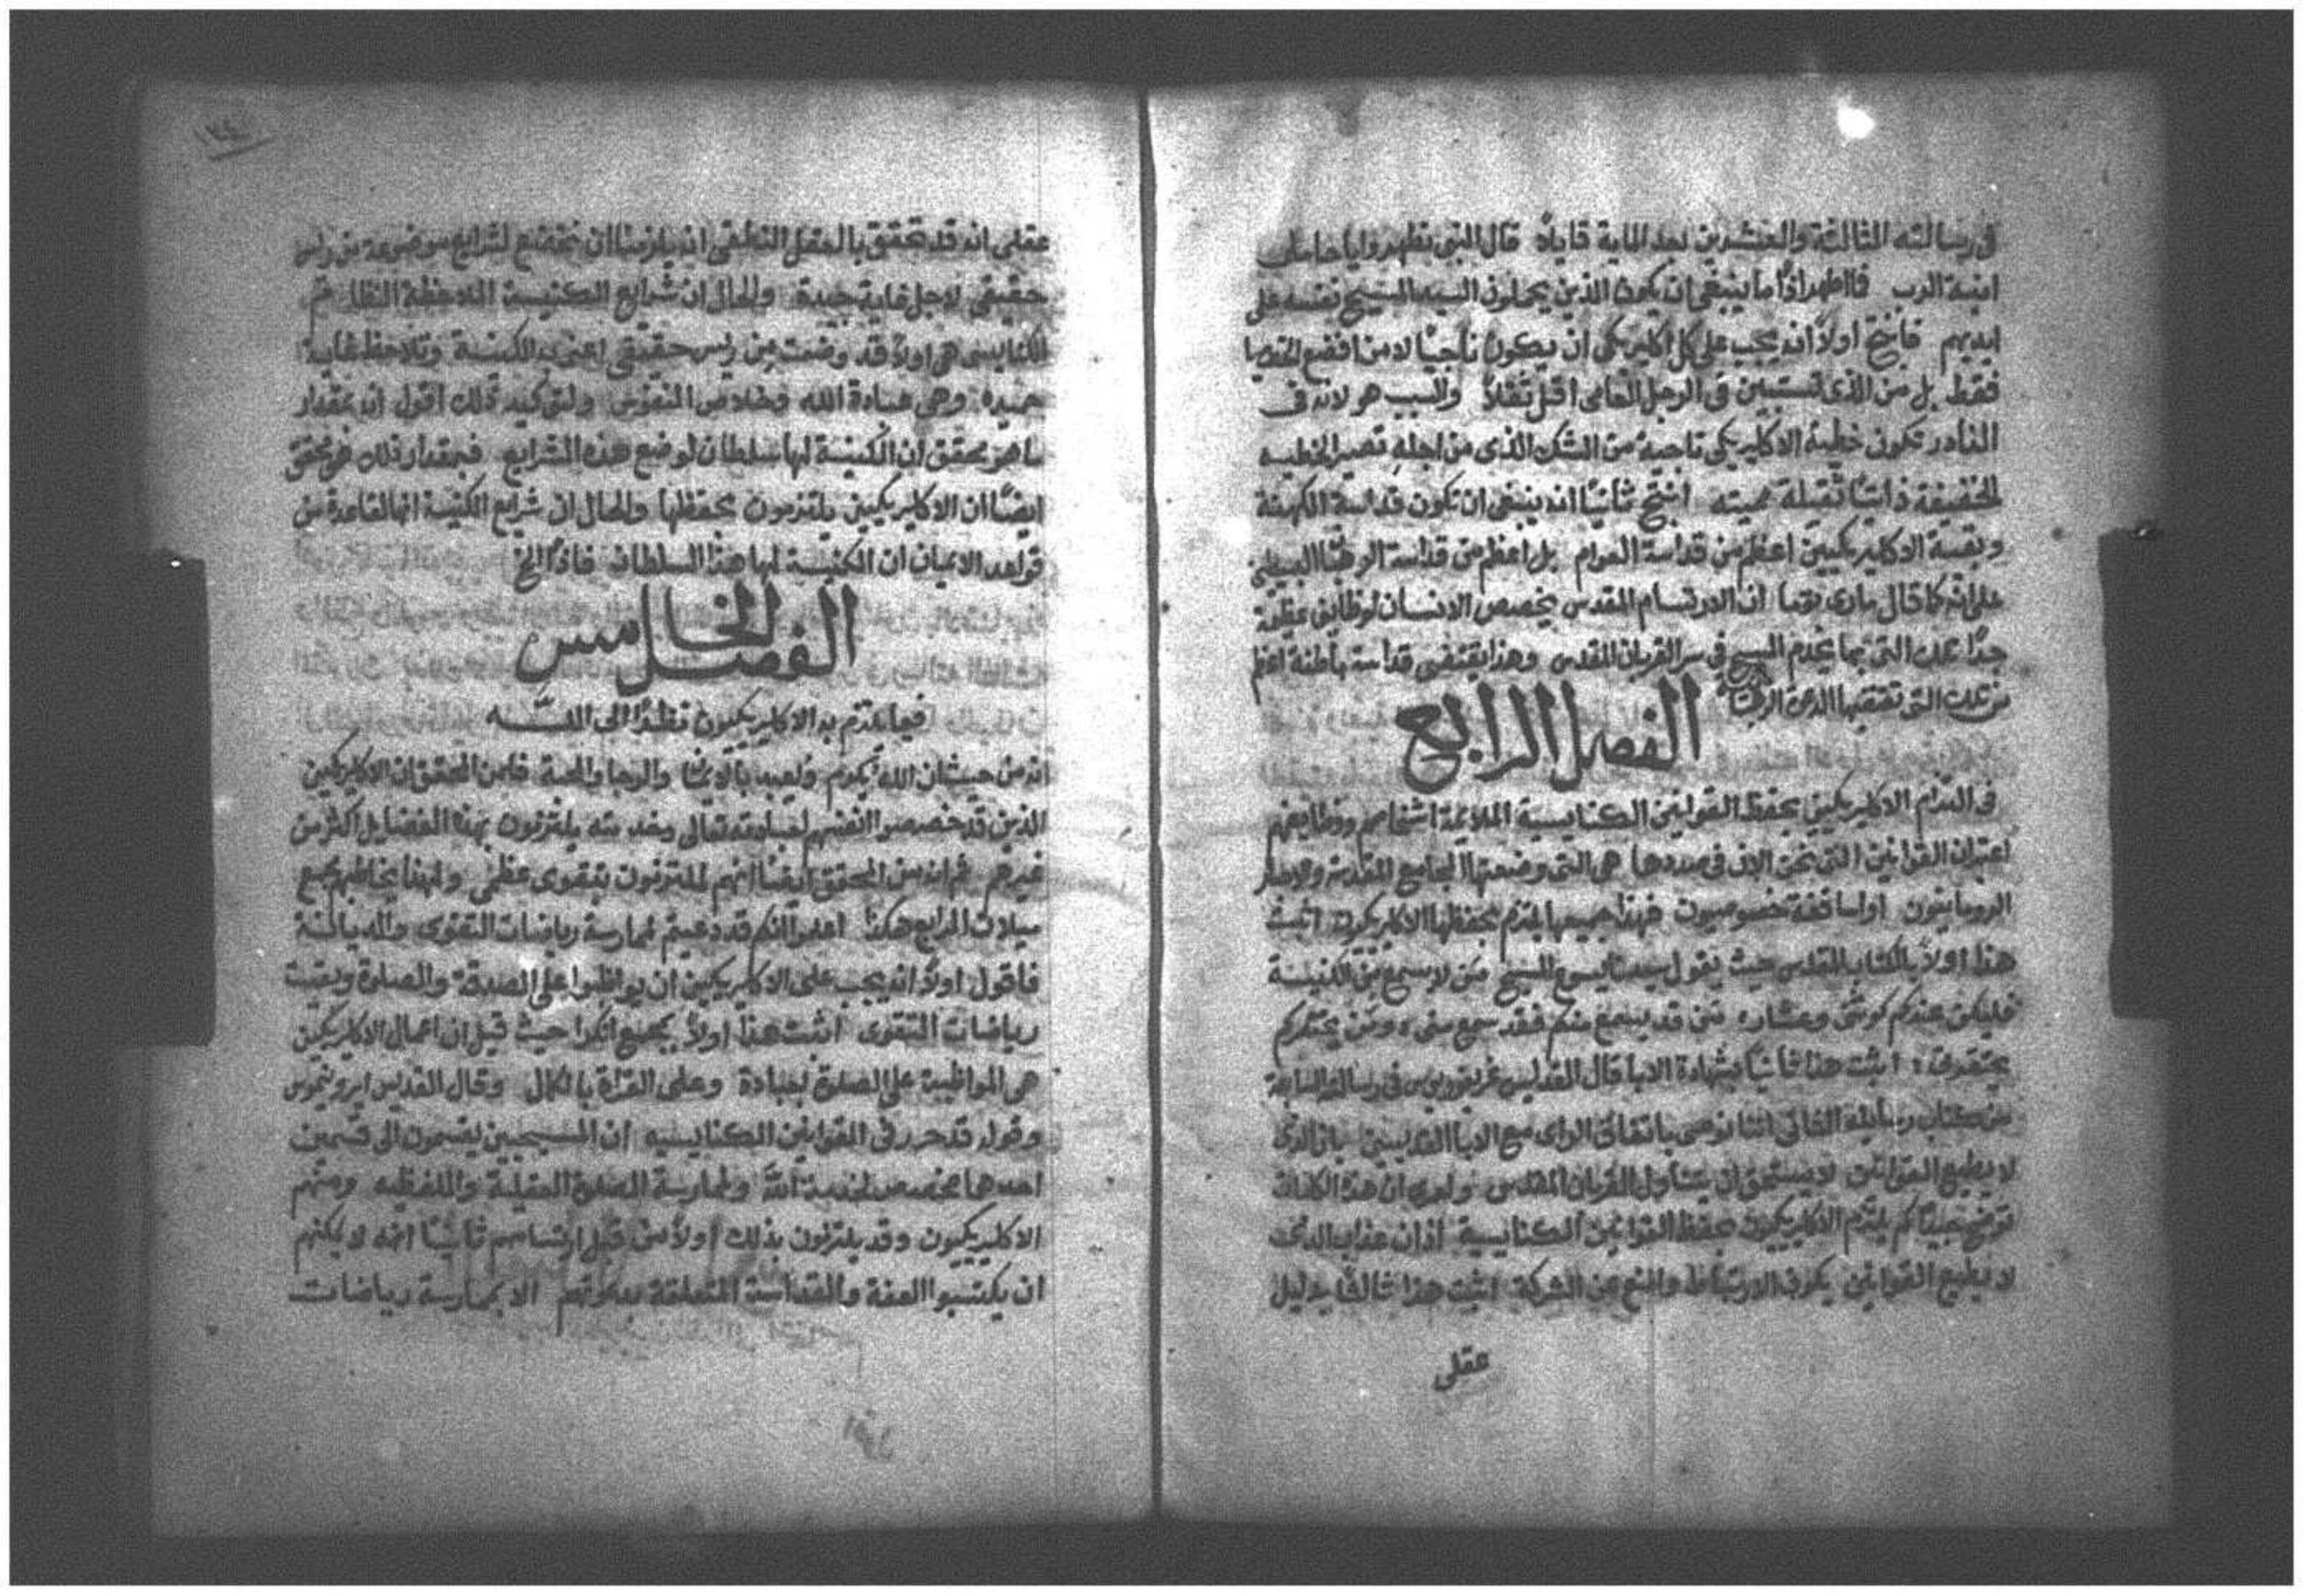 في رسالته الثالثة والعشرين بعد الماية قايلاً قال النبي تطهروا يا حاملي
انية الرب فااطهر اذًا ما ينبغي ان يكون الذين يحملون السيد المسيح نفسه على
ايديهم فانتج اولاً انه يجب على كل اكليريكي ان يكون ناجيًا لا من افضع الخطايا
فقط بل من الذي تستبين في الرجل العامي اقل ثقلاً والسبب هو لانه في
النادر تكون خطية الاكليريكي ناجية من الشك الذي من اجله تصير الخطيه
الخفيفة ذاتيًا ثقيلة مميته انتج ثانيًا انه ينبغي ان تكون قداسة الكهنة
وبقية الاكليريكيين اعظم من قداسة العوام بل اعظم من قداسة الرهبنة البسيطه
على انه كما قال ماري توما ان الارتسام المقدس يخصص الانسان لوظايف عظيمة
جدًا عن التي بها يخدم المسيح في سر القربان المقدس وهذا يقتضي قداسة باطنة اعظم
من تلك التي تقتضيها الدعوة الرهبانية
الفصل الرابع
في التزام الاكليريكيين بحفظ القوانين الكنايسية الملايمة اشخاصهم ووظايفهم
اعتبر ان القوانين التي نحن الان في صددها هي التي وضعتها المجامع المقدسة والاحبار
الرومانيون او اساقفة خصوصيون فهذا جميعها يلتزم بحفظها الاكليريكيون اثبت
هذا اولاً بالكتاب المقدس حيث يقول سيدنا يسوع المسيح من لا يسمع من الكنيسة
فليكن عندكم كوثني وعشار من قد يسمع منكم فقد سمع مني ومن يحتقركم
يحتقرني اثبت هذا ثانيًا بشهادة الابا قال القديس غريغوريوس في رسالته السابعة
من كتاب رسايله الثاني اننا نوصي باتفاق الراي مع الابا القديسين بان الذي
لا يطيع القوانين لا يستحق ان يتناول القربان المقدس ولعمري ان هذا الكلمات
توضح جيدًا كم يلتزم الاكليريكيون بحفظ القوانين الكنايسية اذ ان عذاب الذي
لا يطيع القوانين يكون الارتباط والمنع عن الشركة اثبت هذا ثالثًا بدليل
عقلي
عقلي انه قد تحقق بالعقل النطقي انه يلزمنا ان نخضع لشرايع موضوعة من راس
حقيقي لاجل غاية جيدة والحال ان شرايع الكنيسة الملاحظة النظام
الكنايسي هي اولاً قد وضعت من راس حقيقي اعني به الكنيسة وتلاحظ غاية
حميده وهي عبادة الله وخلاص النفوس ولتوكيد ذلك اقول انه بمقدار
ما هو محقق ان الكنيسة لها سلطان لوضع هذه الشرايع فبمقدار ذلك هو محقق
ايضًا ان الاكليريكيين يلتزمون بحفظها والحال ان شرايع الكنيسة انها لقاعدة من
قواعد الايمان ان الكنيسة لها هذا السلطان فاذًا الخ
الفصل الخامس
فيما يلتزم به الاكليريكيون نظرًا الى اللّه
انه من حيث ان الله يُكرم ويُعبد بالايمان والرجا والمحبة فلمن المحقق ان الاكليريكيين
الذين قد خصصوا انفسهم لعبادته تعالى وخدمته يلتزمون بهذا الفضايل اكثر من
غيرهم ثم انه من المحقق ايضًا انهم لملتزمون بتقوى عظمى ولهذا يخاطبهم مجمع
ميلان الرابع هكذا اعلموا انكم قد دعيتم لممارسة رياضات التقوى والديانة
فاقول اولاً انه يجب على الاكليريكيين ان يواظبوا على الصدقة والصلوة وبقية
رياضات التقوى اثبت هذا اولاً بمجمع حيث قيل ان اعمال الاكليريكيين
هي المواظبة على الصلوة بعبادة وعلى القراة بالكمال وقال القديس ايرونيموس
وقوله قد حرر في القوانين الكنايسيه ان المسيحيين يقسمون الى قسمين
احدهما مخصص لخدمة الله ولممارسة الصلوة العقلية واللفظيه ومنهم
الاكليريكيون وقد يلتزمون بذلك اولاً من قبل ارتسامهم ثانيًا انه لا يمكنهم
ان يكتسبوا العفة والقداسة المتعلقة بدعوتهم الا بممارسة رياضات